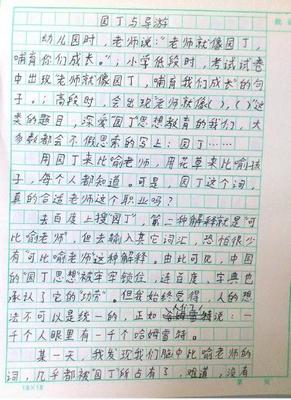 园丁与导游
幼儿园时，老师说："老师就像园丁，
哺育你们成长。"；小学低段时，考试试卷
中出现"老师就像园丁，哺育我们成长"的句
子。；高段时，会出现"老师就像（ ），（ ）"这
类的题目，深爱"园丁"思想教育的我们，大
多数都会不假思索的写上：园丁……
用园丁来比喻老师，用花草来比喻孩
子，每个人都知道。可是，园丁这个词，
真的合适老师这个职业吗？
去百度上搜"园丁"，第一种解释就是"可
比喻老师"，但去输入其它词汇，恐怕很少
有"可比喻老师"这种解释，由此可见，中国
的"园丁"思想被牢牢锁住，连百度、字典也
承认了它的"功劳"，但我始终觉得，人的想
法不可以是统一的，正如人们说：一
千个人眼里有一千个哈姆雷特。
某一天，我发现我们脑中比喻老师的
词，几乎都被"园丁"所占有了，难道，没有
18×18